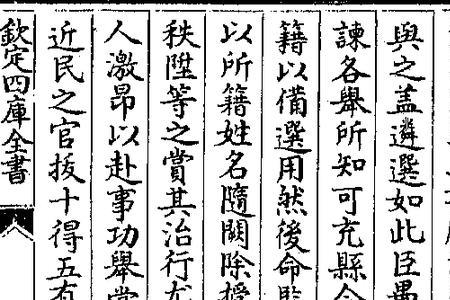 與之蓋遴選如此臣愚
諫各舉所知可充縣令
籍以備選用然後命
以所籍姓名隨闕除授
秩陞等之賞其治行尤
人激昂以赴事功舉
近民之官拔十得五有
欽定四庫全書